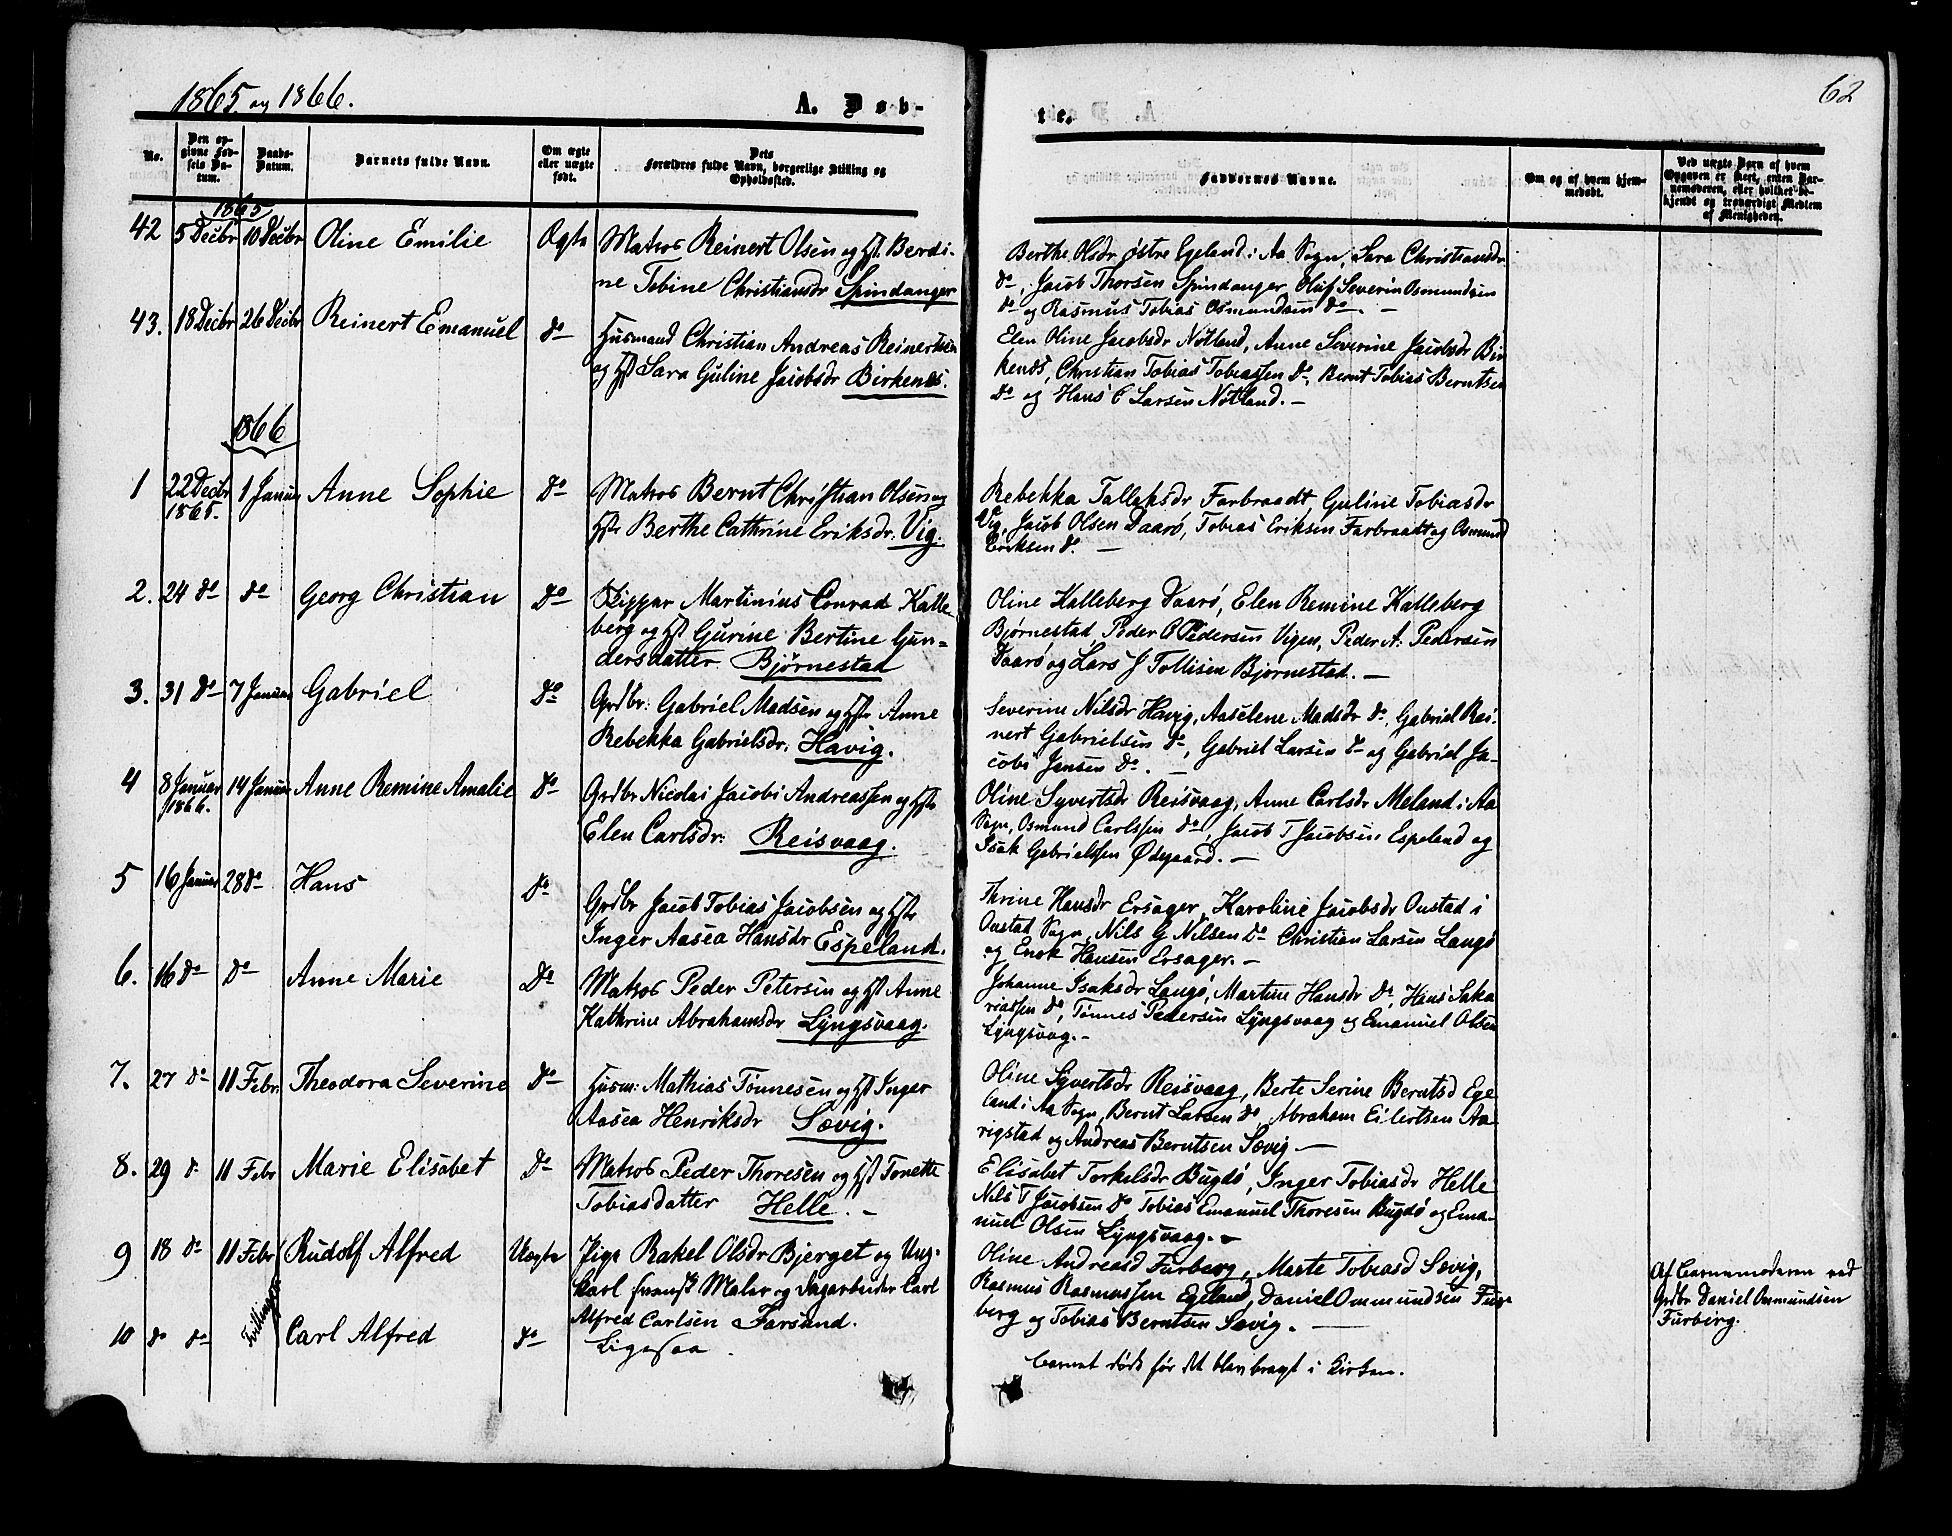 1865 og 1866.
A. Døb-
te.
62
No.
Den op-
givne Fød-
sels Da-
tum.
Daabs-
Datum.
Barnets fulde Navn.
Om ægte
eller uægte
født.
Dets
Forældres fulde Navn, borgerlige Stilling og
Opholdssted.
Faddernes Navne.
Om og af hvem hjem-
medøbt.
Ved uægte Børn af hvem
Opgaven er skeet, enten Bar-
nemoderen, eller hvilket be-
kjendt og troværdigt Medlem
af Menigheden.
1865
42 5 Decbr 10 Decbr Oline Emilie Ægte Matros Reinert Olsen og Hst. Berdi-
ne Tobine Christiansdr Spindanger
Berthe Olsdr østre Egeland i Aa Sogn, Sara Christiansdr
do, Jacob Thorsen Spindanger, Oluf Severin Osmundsen
do og Rasmus Tobias Osmundsen do. -
43. 18 Decbr 26 Decbr Reinert Emanuel do Husmand Christian Andreas Reinertsen
og Hst Sara Guline Jacobsdr Birkenæs.
Elen Oline Jacobsdr Nøtland, Anne Severine Jacobsdr Bir
kenæs, Christian Tobias Tobiassen do, Bernt Tobias Berntsen
do og Hans C Larsen Nøtland. -
1866
1 22 Decbr 1 Januar Anne Sophie do Matros Bernt Christian Olsen og
1865.
Hstr Berthe Cathrine Eriksdr. Vig.
Rebekka Tallaksdr Farbraadt, Guline Tobiasdr
Vig, Jacob Olsen Daarø, Tobias Eriksen Farbraadt og Osmund
Eriksen do. -
2. 24 do do Georg Christian do Skipper Martinius Conrad Kalle
berg og Hst Gurine Bertine Gun-
dersdatter Bjørnestad
Oline Kalleberg Daarø, Elen Remine Kalleberg
Bjørnestad, Peder O Pedersen Vigen, Peder A. Pedersen
Daarø og Lars J Tollisen Bjørnestad. -
3. 31 do 7 Januar Gabriel do Grdbr: Gabriel Madsen og Hstr Anne
Rebekka Gabrielsdr. Havig.
Severine Nilsdr Havig, Aaselene Madsdr do, Gabriel Rei-
nert Gabrielsen do, Gabriel Larsen do og Gabriel Ja-
cobi Jensen do. -
4 8 Januar 14 Januar Anne Remine Amalie do Grdbr Nicolai Jacobi Andreassen og Hstr
1866.
Elen Carlsdr: Reisvaag.
Oline Syvertsdr Reisvaag, Anne Carlsdr Meland i Aa
Sogn, Osmund Carlssen do, Jacob T Jacobsen Espeland og
Isak Gabrielssen Ødegaard. -
5 16 Januar 28 do Hans do Grdbr Jacob Tobias Jacobsen og Hstr
Inger Aasea Hansdr Espeland.
Thrine Hansdr Ersager, Karoline Jacobsdr Oustad i
Oustad Sogn, Nils G Nilsen do Christian Larsen Langø
og Enok Hansen Ersager. -
6. 16 do do Anne Marie do Matros Peder Petersen og Hst Anne
Kathrine Abrahamsdr Lyngsvaag.
Johanne Isaksdr Langø, Martine Hansdr do, Hans Saka
riassen do, Tønnes Pedersen Lyngsvaag og Emanuel Olsen
Lyngsvaag. -
7. 27 do 11 Febr. Theodora Severine do Husm: Mathias Tønnesen og Hst Inger
Aasea Henriksdr Sævig.
Oline Syvertsdr Reisvaag, Berte Serine Berntsd Ege
land i Aa Sogn, Bernt Larsen do, Abraham Eilertsen Aa-
rigstad og Andreas Berntsen Sævig -
8. 29 do 11 Febr Marie Elisabet do Matros Peder Thoresen og Hst Tonette
Tobiasdatter Helle. -
Elisabet Torkelsdr Bugdø, Inger Tobiasdr Helle
Nils T Jacobsen do Tobias Emanuel Thoresen Bugdø og Ema-
nuel Olsen Lyngsvaag. -
9 18 do 11 Febr Rudolf Alfred Uægte Pige Rakel Olsdr Bjerget og Ung-
karl svensk Maler og Dagarbeider Carl
Alfred Carlsen Farsund.
Oline Andreasd Furberg, Marte Tobiasd Sævig,
Rasmus Rasmussen Egeland, Daniel Ommundsen Fur-
berg og Tobias Berntsen Sævig. -
Af Barnemoderen ved
Grdbr Daniel Ommundsen
Furberg.
Tvillinger
10 do do Carl Alfred do Ligesaa.
Barnet døde før det blev bragt i Kirken.